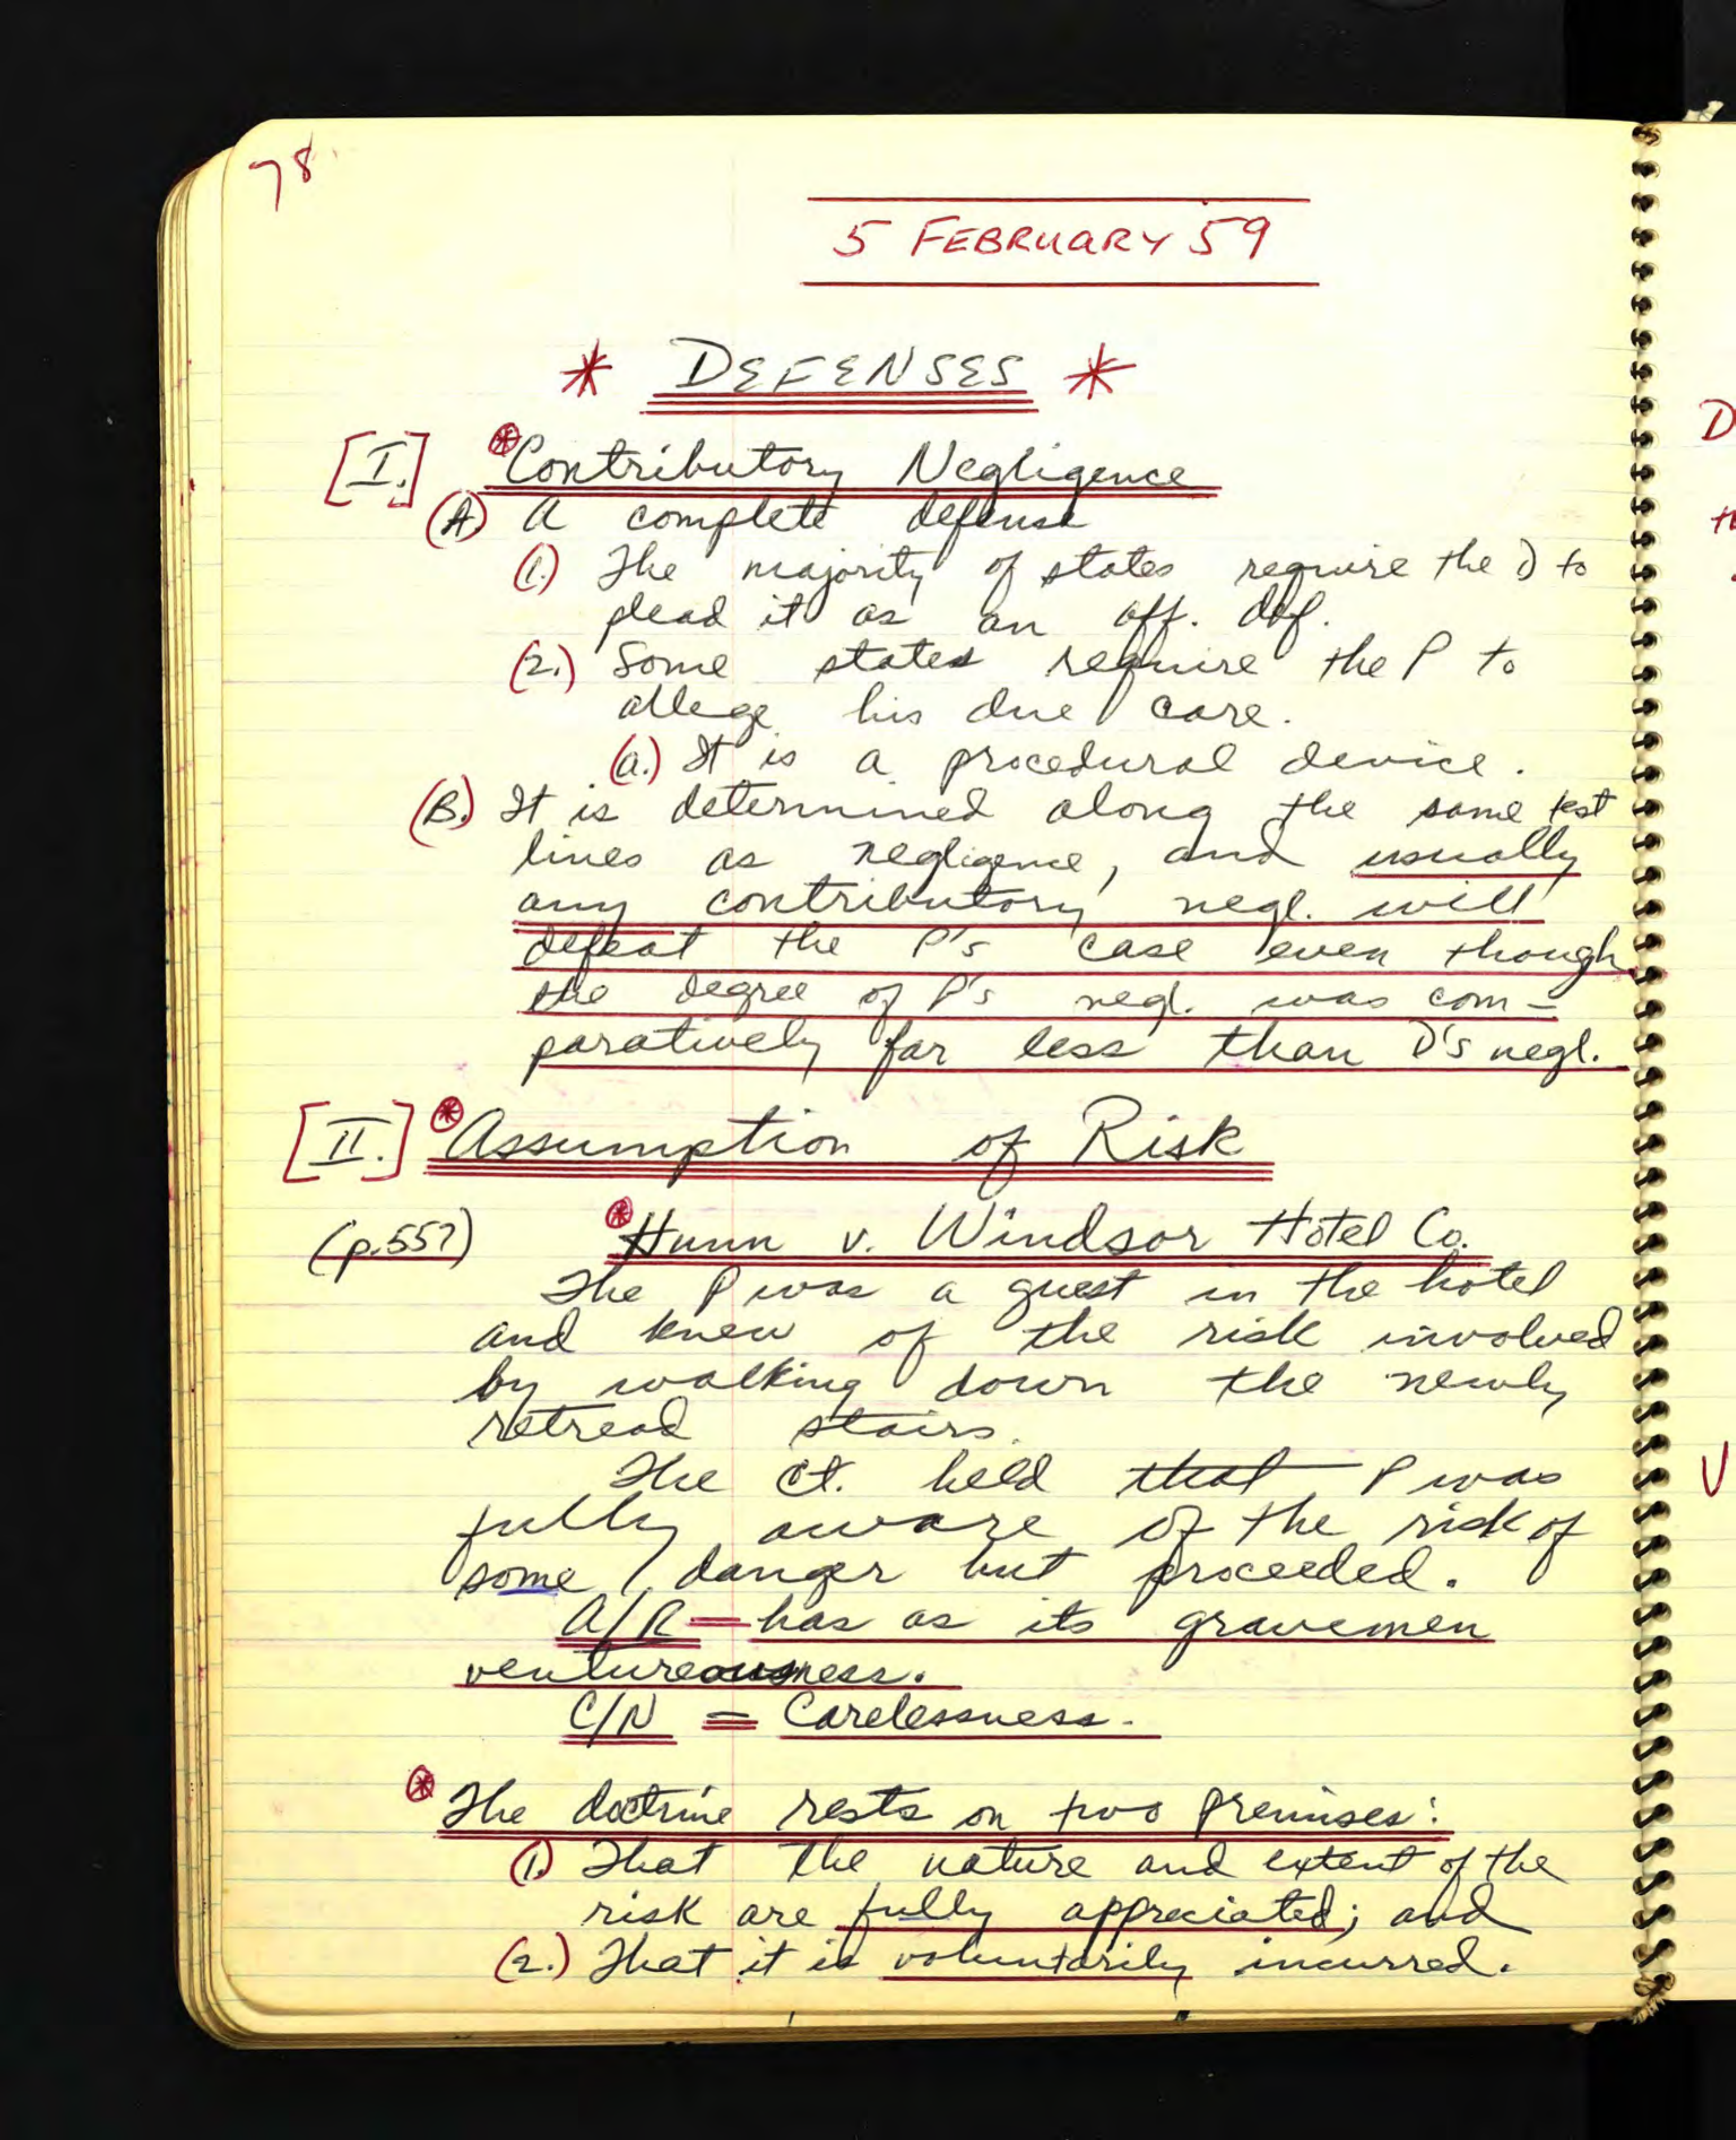 78
5 FEBRUARY 59
* DEFENSES *
[I.] *Contributory Negligence
(A.) A complete defense
(1.) The majority of states require the D to
plead it as an aff. def.
(2.) Some states require the P to
allege his due care.
(a.) It is a procedural device.
(B.) It is determined along the same test
lines as negligence, and usually
any contributory negl. will
defeat the P's case even though
the degree of P's negl. was com-
paratively far less than D's negl.
[II.] *Assumption of Risk
(p.557) *Hunn v. Windsor Hotel Co.
The P was a guest in the hotel
and knew of the risk involved
by walking down the newly
retread stairs.
The ct. held that P was
fully aware of the risk of
some danger but proceeded.
A/R = has as its gravemen
ventureousness.
C/N = Carelessness.
*The doctrine rests on two premises:
(1.) That the nature and extent of the
risk are fully appreciated; and
(2.) That it is voluntarily incurred.
D
V